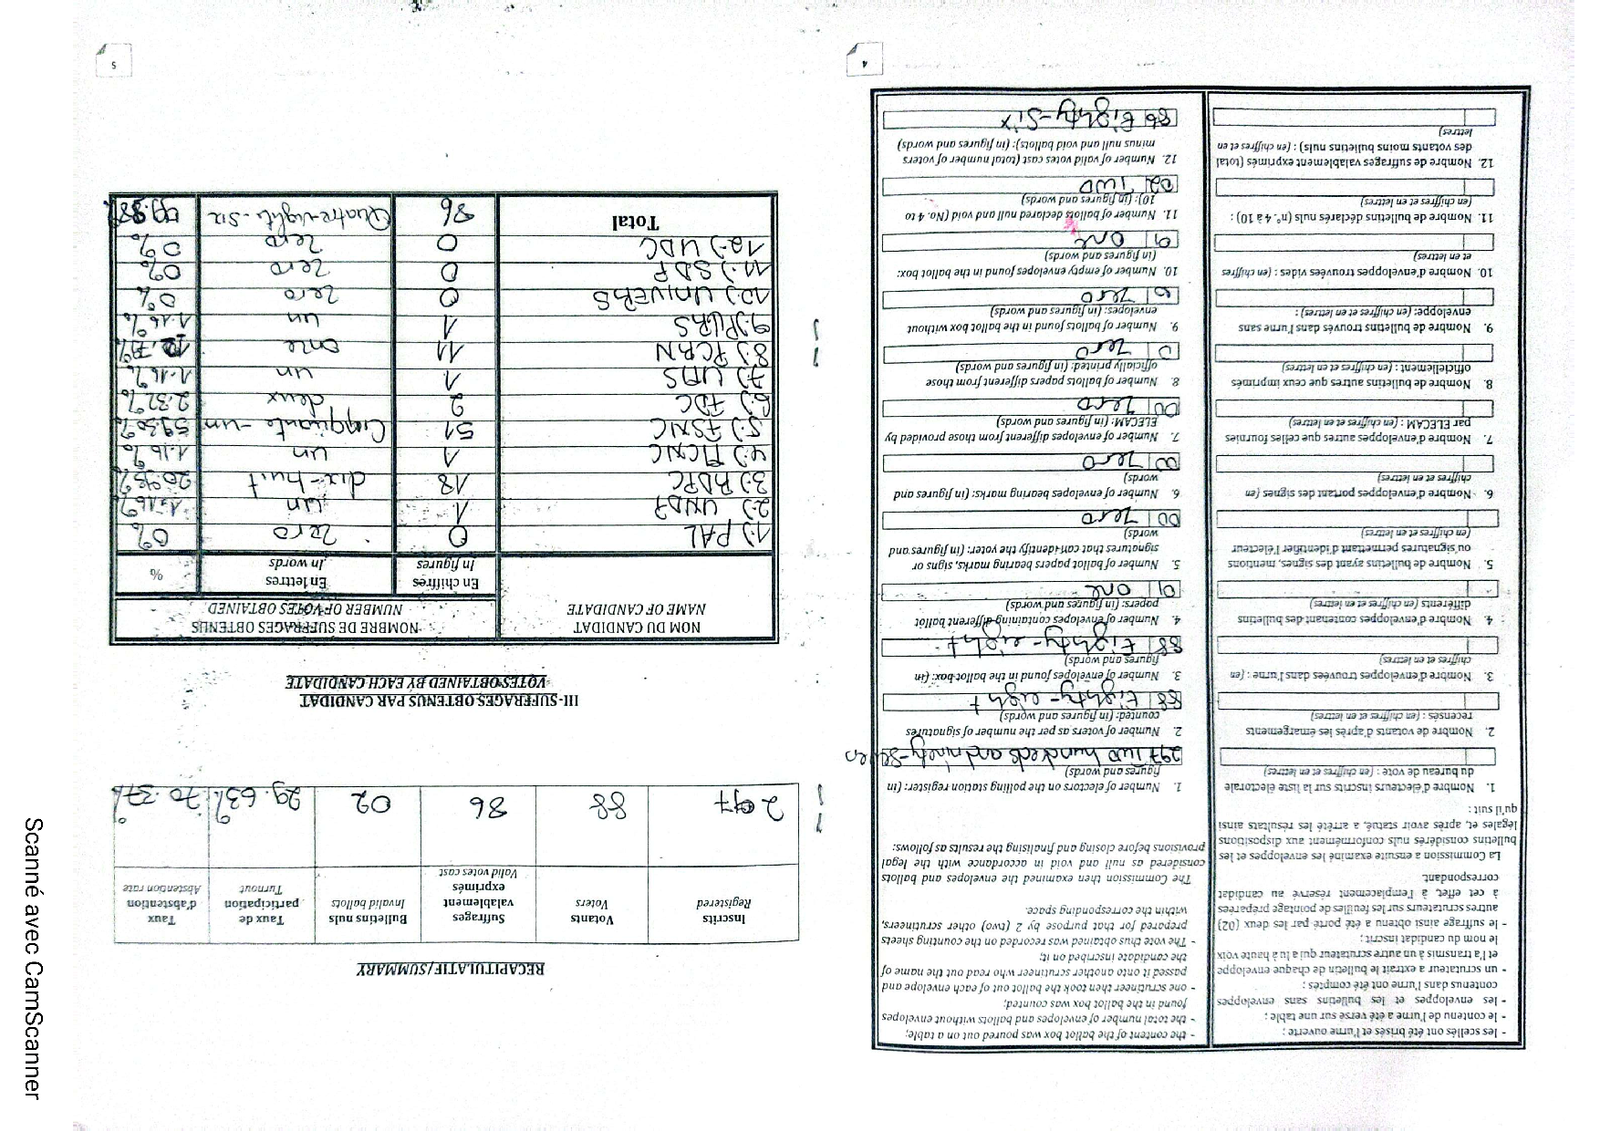 4
- les scellés ont été brisés et l'urne ouverte ;
- le contenu de l'urne a été versé sur une table ;
- les enveloppes et les bulletins sans enveloppes
contenus dans l'urne ont été comptés ;
- un scrutateur a extrait le bulletin de chaque enveloppe
et l'a transmis à un autre scrutateur qui l'a lu à haute voix
le nom du candidat inscrit ;
- le suffrage ainsi obtenu a été porté par les deux (02)
autres scrutateurs sur les feuilles de pointage préparées
à cet effet, à l'emplacement réservé au candidat
correspondant.
La Commission a ensuite examiné les enveloppes et les
bulletins considérés nuls conformément aux dispositions
légales et, après avoir statué, a arrêté les résultats ainsi
qu'il suit :
1. Nombre d'électeurs inscrits sur la liste électorale
du bureau de vote : (en chiffres et en lettres)
2. Nombre de votants d'après les émargements
recensés : (en chiffres et en lettres)
3. Nombre d'enveloppes trouvées dans l'urne : (en
chiffres et en lettres)
4. Nombre d'enveloppes contenant des bulletins
différents (en chiffres et en lettres)
5. Nombre de bulletins ayant des signes, mentions
ou signatures permettant d'identifier l'électeur
(en chiffres et en lettres)
6. Nombre d'enveloppes portant des signes (en
chiffres et en lettres)
7. Nombre d'enveloppes autres que celles fournies
par ELECAM : (en chiffres et en lettres)
8. Nombre de bulletins autres que ceux imprimés
officiellement : (en chiffres et en lettres)
9. Nombre de bulletins trouvés dans l'urne sans
enveloppe: (en chiffres et en lettres) :
10. Nombre d'enveloppes trouvées vides : (en chiffres
et en lettres)
11. Nombre de bulletins déclarés nuls (n°. 4 à 10) :
(en chiffres et en lettres)
12. Nombre de suffrages valablement exprimés (total
des votants moins bulletins nuls) : (en chiffres et en
lettres)
- the content of the ballot box was poured out on a table;
- the total number of envelopes and ballots without envelopes
found in the ballot box was counted;
- one scrutineer then took the ballot out of each envelope and
passed it onto another scrutineer who read out the name of
the candidate inscribed on it;
- The vote thus obtained was recorded on the counting sheets
prepared for that purpose by 2 (two) other scrutineers,
within the corresponding space.
The Commission then examined the envelopes and ballots
considered as null and void in accordance with the legal
provisions before closing and finalising the results as follows:
1. Number of electors on the polling station register: (in
figures and words)
297 two hundreds and ninety-seven
2. Number of voters as per the number of signatures
counted: (in figures and words)
88 Eighty-eight
3. Number of envelopes found in the ballot box: (in
figures and words)
88 Eighty-eight
4. Number of envelopes containing different ballot
papers: (in figures and words)
01 one
5. Number of ballot papers bearing marks, signs or
signatures that can identify the voter: (in figures and
words)
00 zero
6. Number of envelopes bearing marks: (in figures and
words)
00 zero
7. Number of envelopes different from those provided by
ELECAM: (in figures and words)
00 zero
8. Number of ballots papers different from those
officially printed: (in figures and words)
0 zero
9. Number of ballots found in the ballot box without
envelopes: (in figures and words)
0 zero
10. Number of empty envelopes found in the ballot box:
(in figures and words)
01 one
11. Number of ballots declared null and void (No. 4 to
10): (in figures and words)
02 TWO
12. Number of valid votes cast (total number of voters
minus null and void ballots): (in figures and words)
86 Eighty-Six
5
RECAPITULATIF/SUMMARY
Inscrits Registered
Votants Voters
Suffrages valablement exprimés Valid votes cast
Bulletins nuls Invalid ballots
Taux de participation Turnout
Taux d'abstention Abstention rate
297 88 86 02 29.63% 70.37%
III- SUFFRAGES OBTENUS PAR CANDIDAT
VOTES OBTAINED BY EACH CANDIDATE
NOM DU CANDIDAT
NAME OF CANDIDATE
NOMBRE DE SUFFRAGES OBTENUS
NUMBER OF VOTES OBTAINED
En chiffres In figures
En lettres In words
%
1:) PAL 0 zero 0%
2:) UNDP 1 un 1.16%
3:) RDPC 18 dix-huit 20.93%
4:) MCNC 1 un 1.16%
5:) FSNC 51 Cinquante-un 59.30%
6:) FDC 2 deux 2.32%
7:) UMS 1 un 1.16%
8:) PCRN 11 onze
9:) PURS 1 un 1.16%
10:) UNIVERS 0 zero 0%
11:) SDF 0 zero 0%
12:) UDC 0 zero 0%
Total 86 Quatre-vight-six
Scanné avec CamScanner